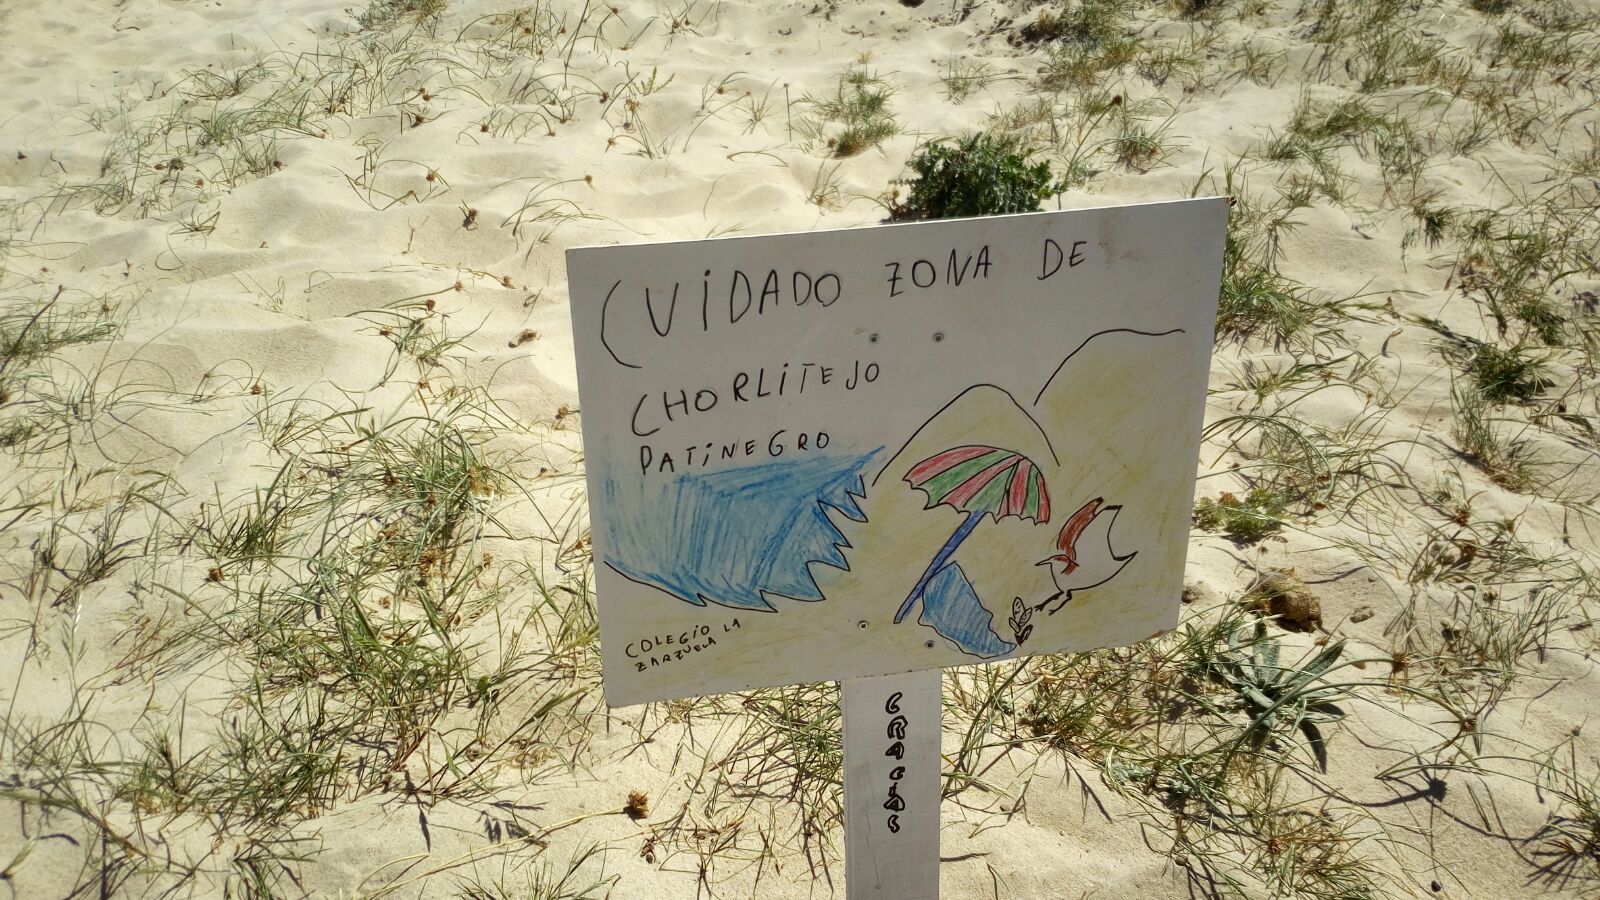 CUiDADO ZONA DE
CHORLiTEJO
PATiNEGRO
COLEGiO LA
ZARZUELA
GRACIAS